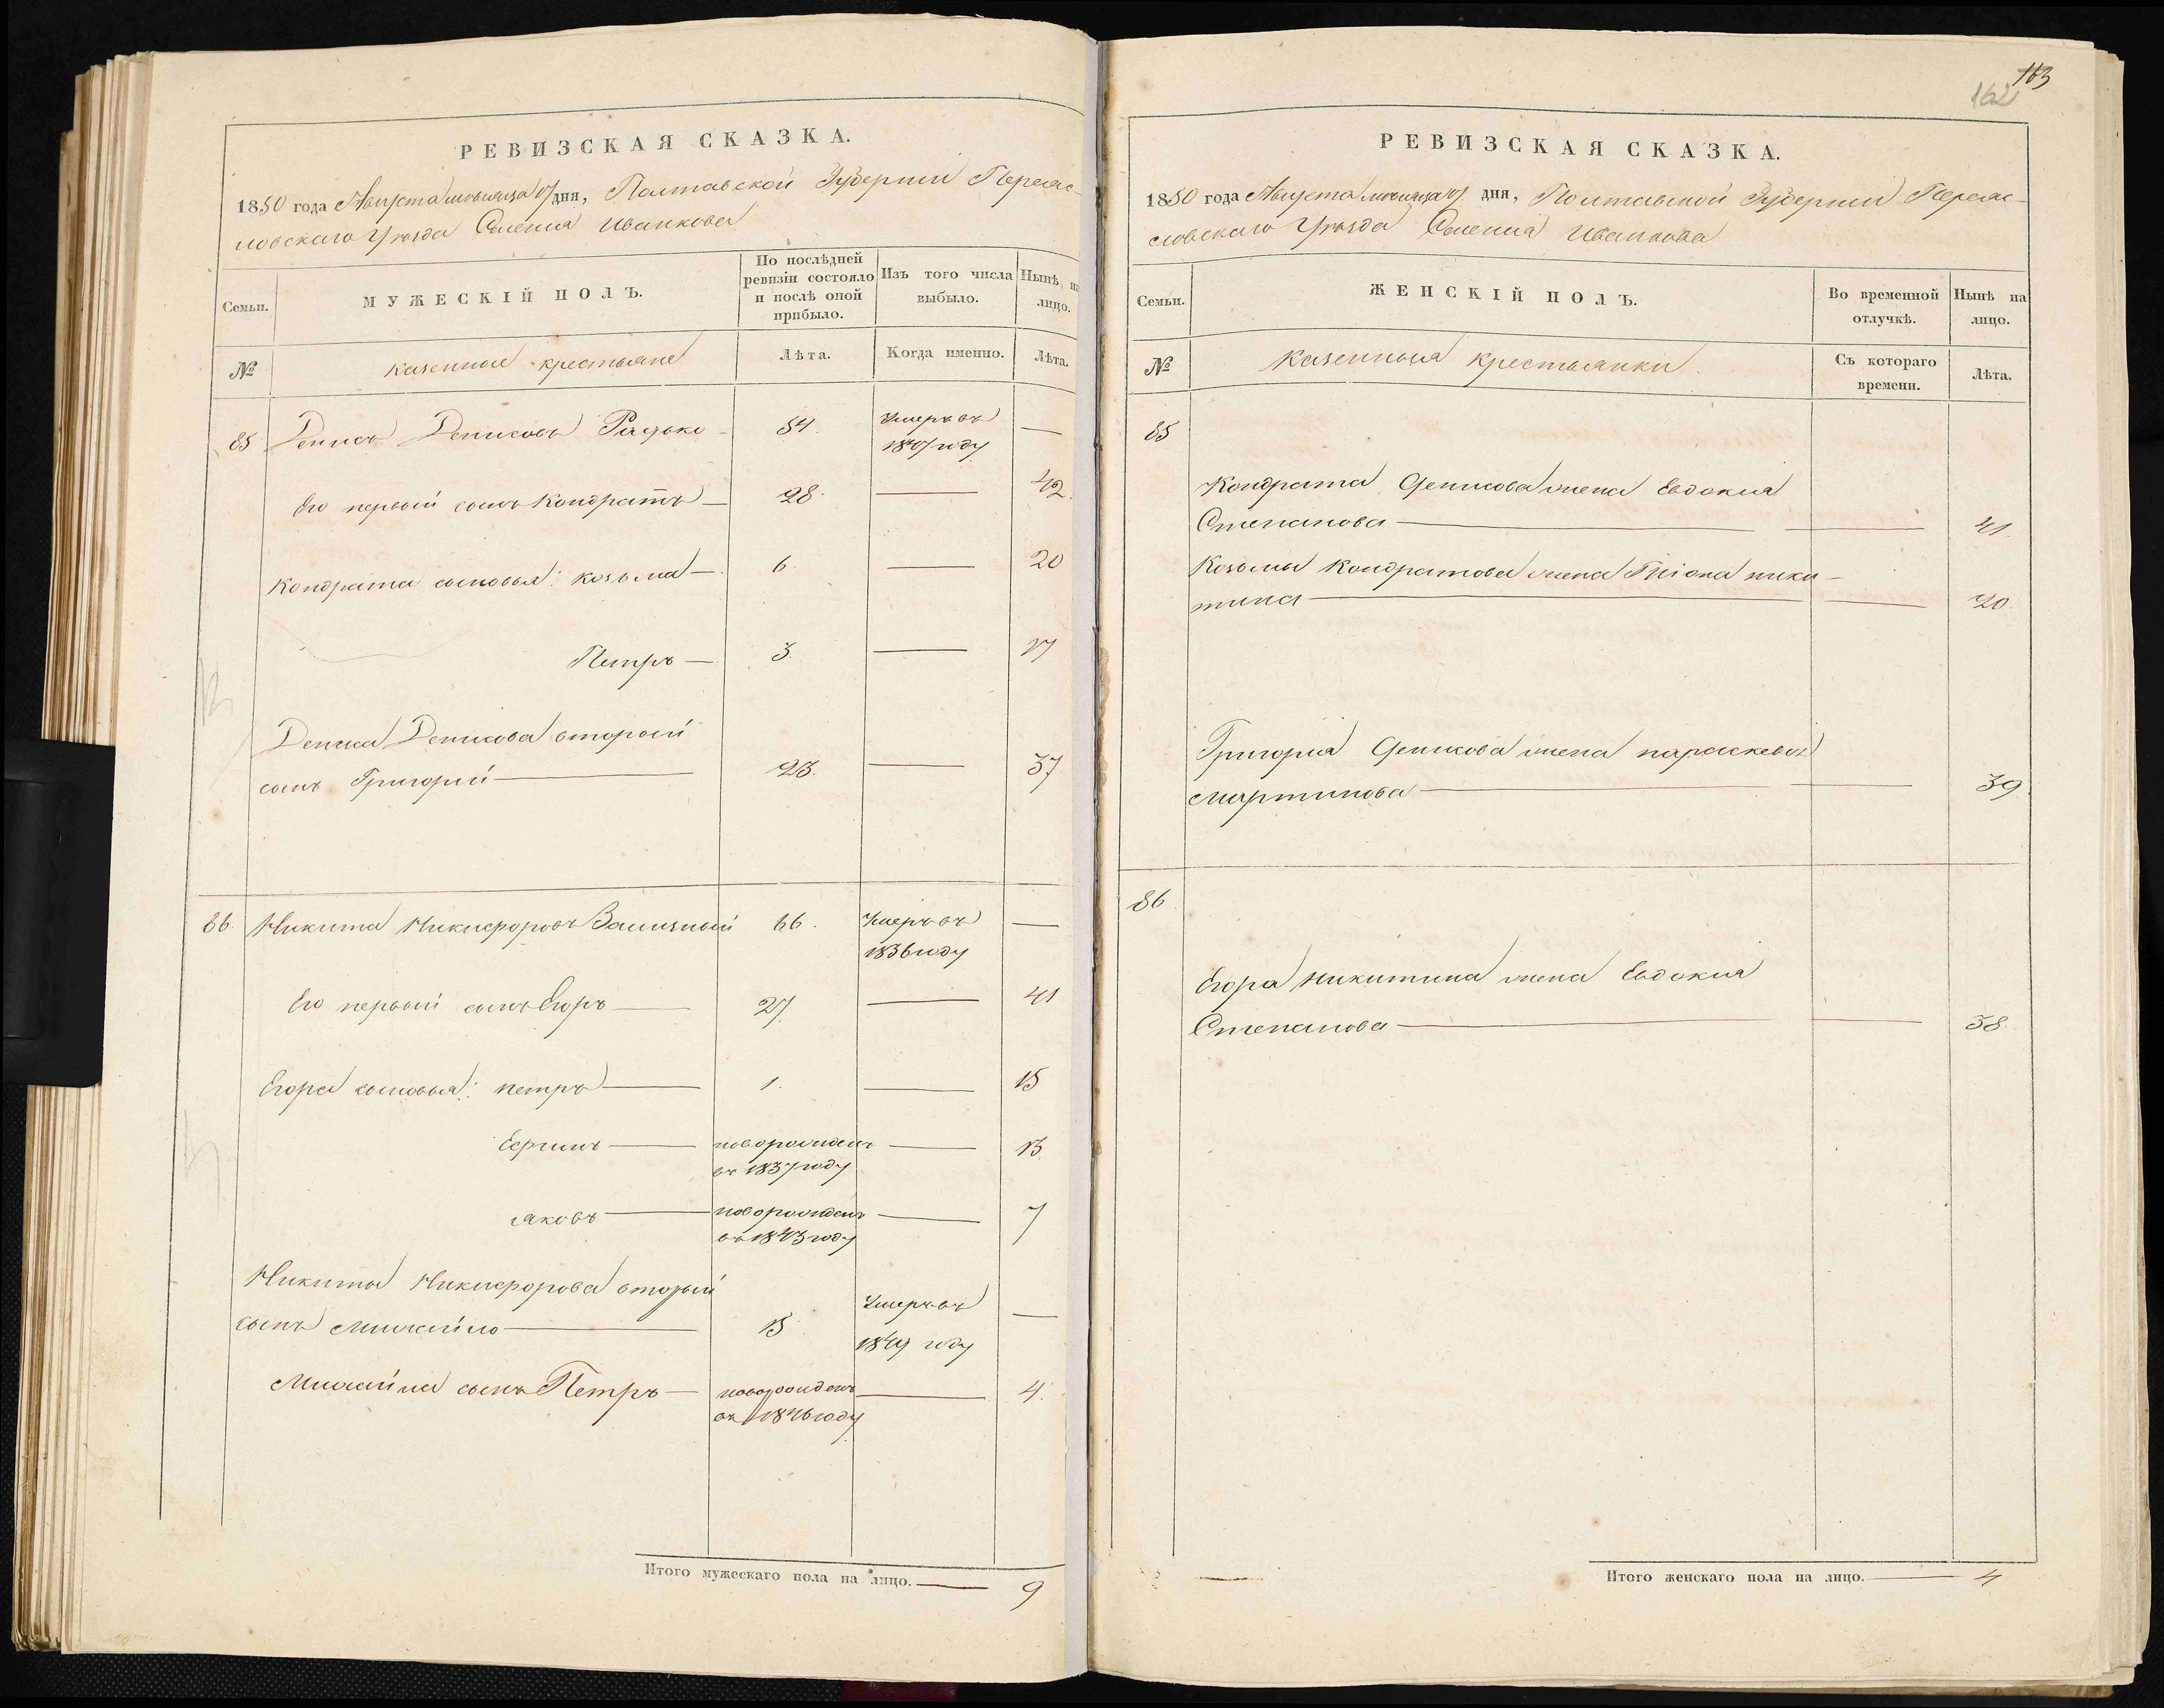 163
162
РЕВИЗСКАЯ СКАЗКА.
1850 года Августа мѣсяца дня, Полтавской Губерніи Переяс-
ловскаго Уѣзда Селенія Иванкова
Семьи.
МУЖЕСКІЙ ПОЛЪ.
По послѣдней
ревизіи состояло
и послѣ оной
прибыло.
Изъ того числа
выбыло.
Нынѣ на
лицо.
№
казенные крестьяне
Лѣта.
Когда именно.
Лѣта.
85 Денисъ Денисовъ 54. Умеръ въ —
году
Его первый сынъ Кондратъ — 28. — 42.
Кондрата сыновья: козьма — 6. — 20
Петръ — 3. — 17
Дениса Денисова вторый
сынъ Григорій — 23. — 37
86. Никита Никифоровъ 66. Умеръ въ —
1836 году
Его первый сынъ Егоръ — 27. — 41
Егора сыновья: петръ — 1. — 15
Ефимъ — новорожденъ — 13.
въ 1837 году
яковъ — новорожденъ — 7
въ 1843 году
Никиты Никифорова вторый
сынъ Михайло — 15 Умеръ въ —
1849 году
Михайла сынъ Петръ — новорожденъ — 4.
въ 1846 году
Итого мужескаго пола на лицо. — 9
РЕВИЗСКАЯ СКАЗКА.
1850 года Августа мѣсяца дня, Полтавской Губерніи Переяс-
словскаго Уѣзда Селенія Иванкова
Семьи.
ЖЕНСКІЙ ПОЛЪ.
Во временной
отлучкѣ.
Нынѣ на
лицо.
№
казенныя крестьянки.
Съ котораго
времени.
Лѣта.
85
Кондрата Денисова жена Евдокия
Степанова — — 41.
Козьмы Кондратова жена ники-
тина — — 20.
Григорія Денисова жена параскевья
мартинова — — 39.
86.
Егора Никитина жена Евдокия
Степанова — — 38.
Итого женскаго пола на лицо. — 4